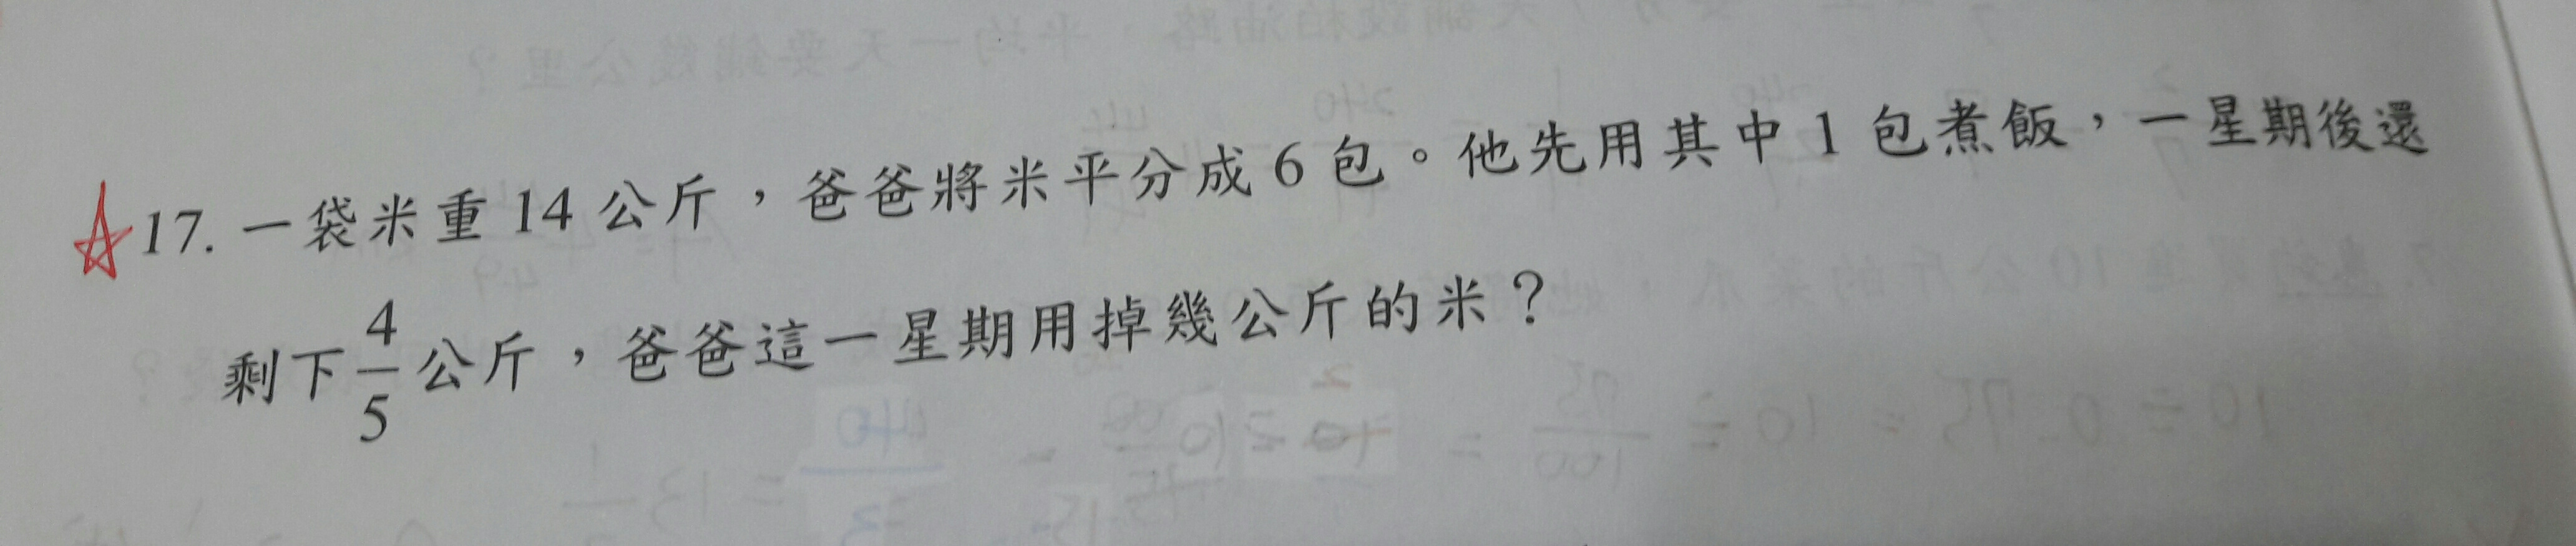 17. 一袋米重 14 公斤，爸爸將米平分成 6 包。他先用其中 1 包煮飯，一星期後還
剩下 4/5 公斤，爸爸這一星期用掉幾公斤的米？